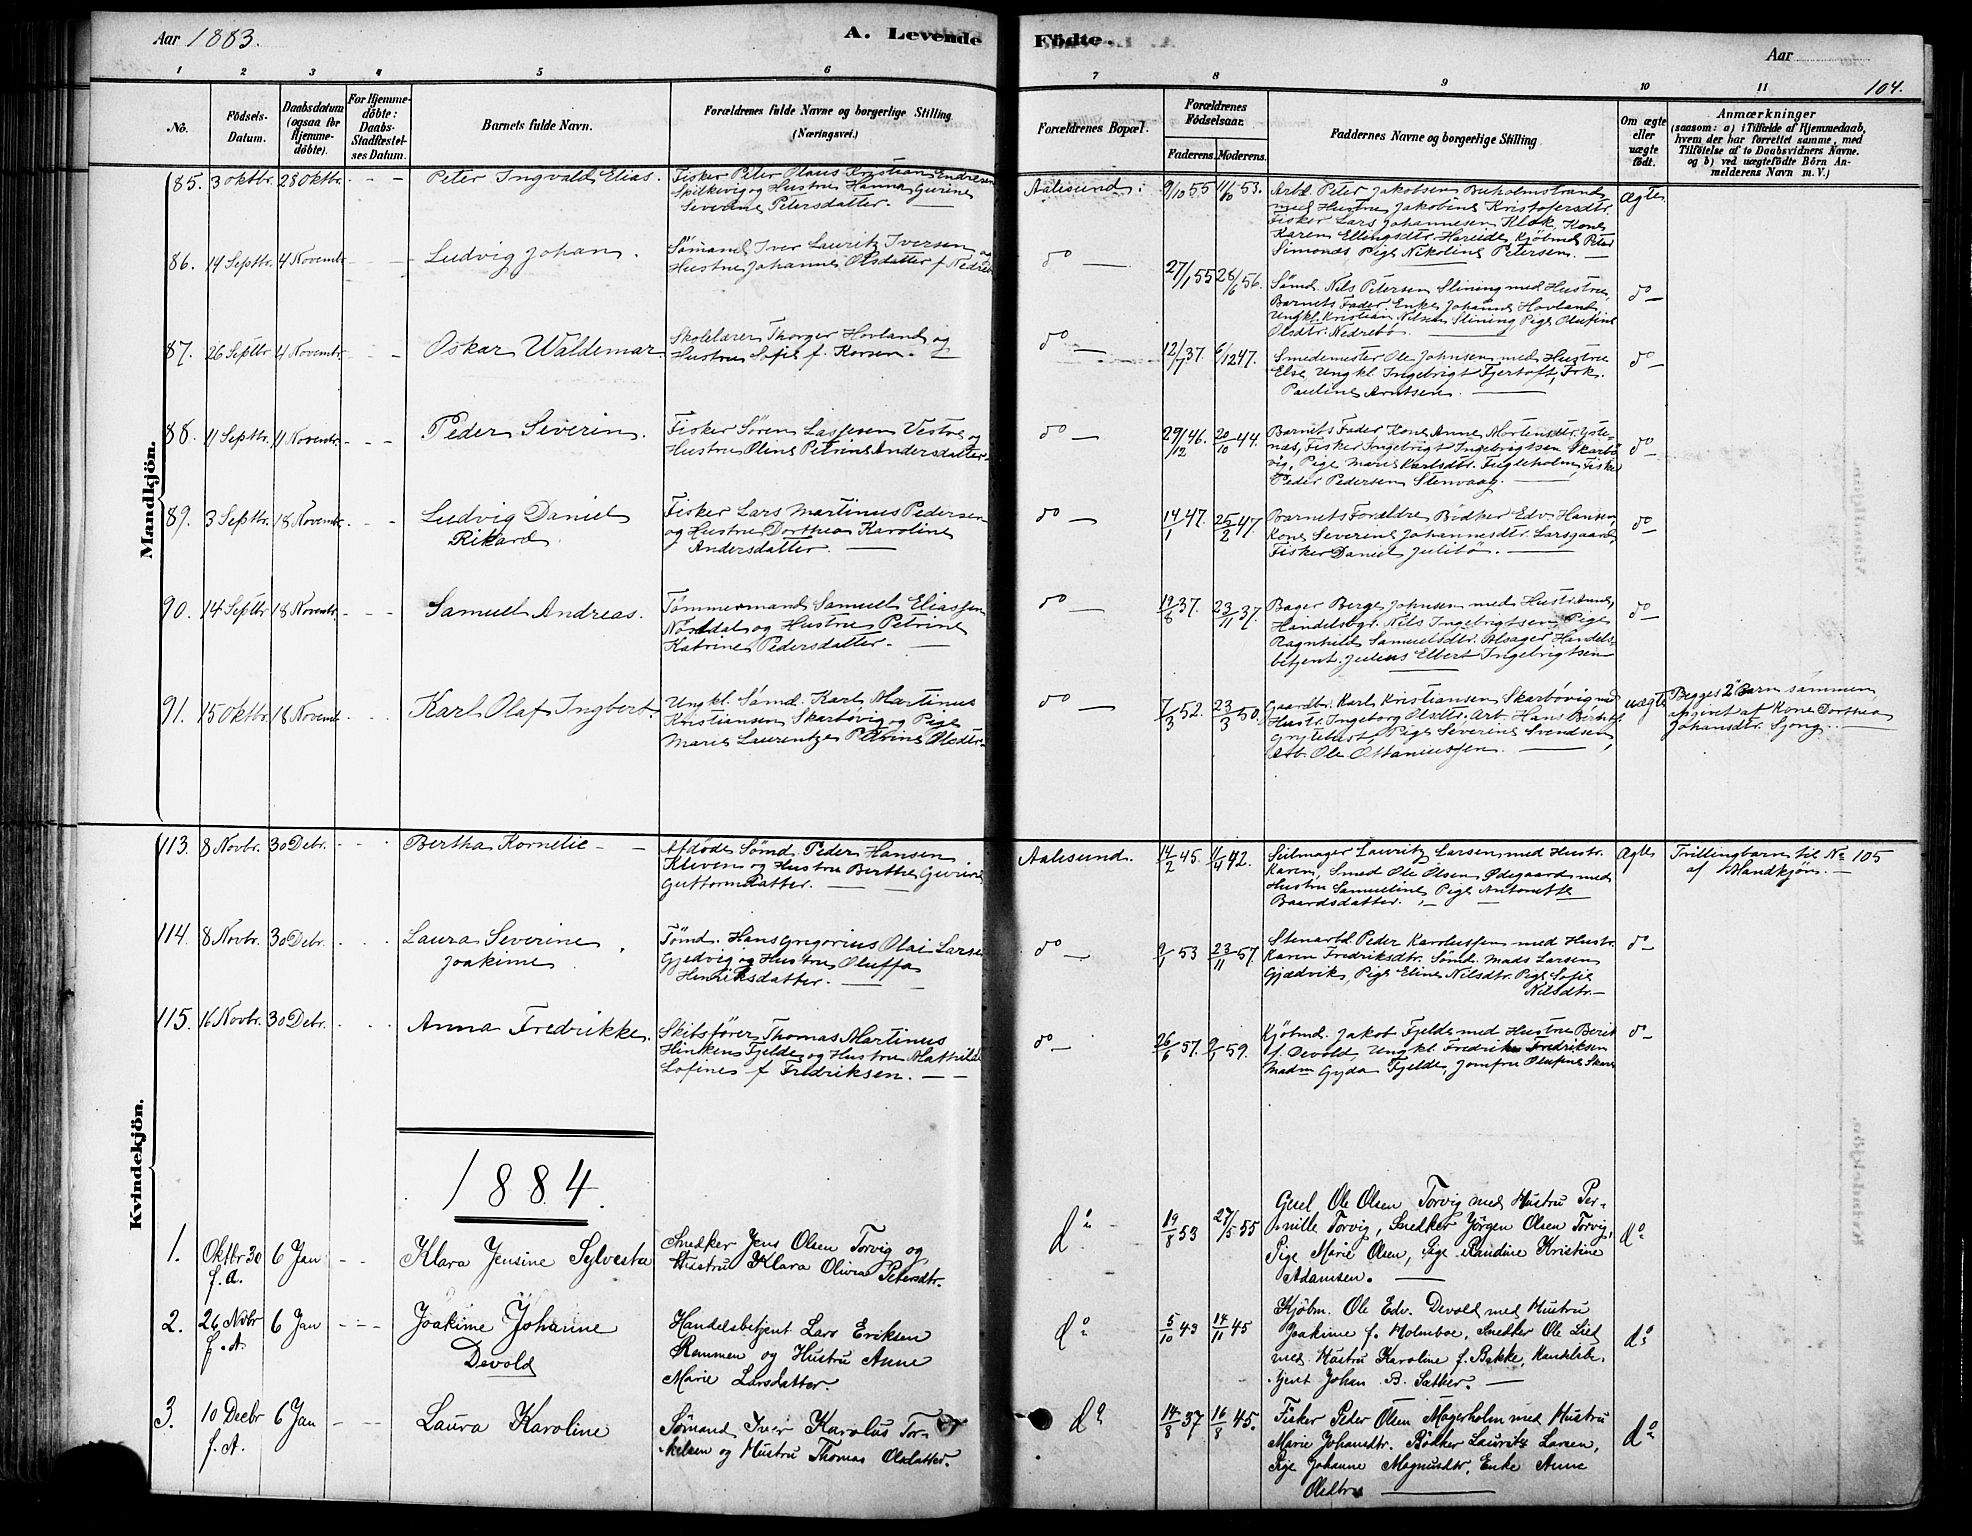 Aar 1883.
A. Levende Fødte.
Aar
104.
1 2 3 4 5 6 7 8 9 10 11
No.
Fødsels-Datum.
Daabsdatum (ogsaa for Hjemme-døbte).
For Hjemme-døbte: Daabs-Stadfæstel-ses Datum.
Barnets fulde Navn.
Forældrenes fulde Navne og borgerlige Stilling (Næringsvei).
Forældrenes Bopæl.
Forældrenes Fødselsaar.
Faderens. Moderens.
Faddernes Navne og borgerlige Stilling
Om ægte eller uægte født.
Anmærkninger
(saasom: a) i Tilfælde af Hjemmedaab,
hvem der har forrettet samme, med
Tilføielse af to Daabsvidners Navne.
og b) ved uægtefødte Børn An-
melderens Navn m. V.)
Mandkjön.
85. 3 Oktbr. 28 Oktbr. - - Peter Ingvald Elias.
Fisker Peter Olaus Kristian Endresen
Spilkevig og Hustru Hanna Gurine
Severine Petersdatter.
Aalesund: 9/10 55 11/10 53.
Arbd. Peter Jakobsen Buholmstrand
med Hustru Jakobine Kristofersdtr.
Fisker Lars Johannesen Klok, Kone
Karen Ellingsdtr. Hareide, Kjöbmd Peter
Simonæs Pige Nikoline Petersen.
Ægte
86. 14 Septbr. 4 Novembr. - - Ludvig Johan.
Sømand Iver Lauritz Iversen og
Hustru Johanne Olsdatter f. Nedrebö
do 27/1 55 26/6 56.
Sömd. Nils Petersen Slining med Hustru,
Barnets Fader, Enke Johanne Hovland,
Ungkl. Kristian Nilsen Slining Pige Olufine
Olsdtr. Nedrebö.
do
87. 26 Septbr 4 Novembr. - - Oskar Waldemar
Skolelærer Thorger Hovland og
Hustru Sofie f. Korsen.
do 12/7 37. 6/12 47.
Smedemester Ole Johnsen med Hustru
Else, Ungkl. Ingebrigt Fjertoft, Frk.
Pauline Arntsen.
do
88. 11 Septbr. 11 Novembr. - - Peder Severin.
Fisker Søren Lassesen Vestre og
Hustru Oline Petrine Andersdatter
do 29/12 46. 20/10 44.
Barnets Fader Kone Anne Mortensdtr. Yste-
næs, Fisker Ingebrigt Ingebrigtsen Skarbö
vig, Pige Marie Karlsdtr. Fugleholm, Fisker
Peder Pedersen Stenvaag.
do
89. 3 Septbr. 18 Novembr. - - Ludvig Daniel
Rikard.
Fisker Lars Martinus Pedersen
og Hustru Dorthea Karoline
Andersdatter.
do 14/1 47. 25/2 47.
Barnets Forældre Bødker Edv. Hansen,
Kone Severine Johannesdtr. Larsgaard,
Fisker Daniel Julibö.
do
90. 14 Septbr 18 Novembr. - - Samuel Andreas.
Tømmermand Samuel Eliassen
Norddal og Hustru Petrine
Katrine Pedersdatter.
do 19/8 37. 23/11 37.
Bager Berge Johnsen med Hustr.
Handelsbgr. Nils Ingebrigtsen, Pige
Ragnhild Samuelsdtr. Alsager Handels-
betjent Julius Elbert Ingebrigtsen
do
91. 15 Oktbr. 18 Novemb. - - Karl Olaf Ingbert.
Ungkl. Sømd. Karl Martinus
Kristiansen Skarbövig og Pige
Marie Laurentze Petrine Olsdtr.
do 7/3 52. 23/3 50.
Gaardbr. Karl Kristiansen Skarbövig med
Hustr. Ingeborg Olsdtr. Arb. Hans Bertels
Grytehust, Pige Severine Svendsen,
Arb. Ole Ottaniussen.
uægte
Begges 2det Barn sammen
angivet af Kone Dorthea
Johansdtr. Sjong.
Kvindekjön.
113. 8 Novbr. 30 Debr. Bertha Kornelie
Afdøde Sömd. Peder Hansen
Kleven og Hustru Berthe Gurine
Guttormsdatter.
Aalesund. 14/2 45. 11/4 42.
Seilmager Lauritz Larsen med Hustr.
Karen, Smed Ole Olsen Ødegaard med
Hustru Samueline, Pige Antonette
Baardsdatter.
Ægte
Tvillingbarn til No 105
af Mandkjön.
114. 8 Novbr. 30 Debr. Laura Severine
Joakime
Tømd. Hans Gregorius Olai Larsen
Gjedvig og Hustru Oluffa
Henriksdatter.
do 9/1 53 23/11 57.
Stenarbd. Peder Karolussen med Hustr.
Karen Fredriksdtr. Sömd. Mads Larsen
Gjædvik, Pige Eline Nilsdtr. Pige Sofie
Nilsdtr.
do
115. 16 Novbr. 30 Debr. Anna Fredrikke.
Skibsfører Thomas Martinus
Hinken Fjelde og Hustru Mathilde
Lofine f. Fredriksen.
do 26/6 57. 9/1 59.
Kjöbmd. Jakob Fjelde med Hustru Berit
f. Devold, Ungkl. Fredrik Fredriksen
Madm Gyda Fjelde, Jomfru Olufine Skare
do
1884.
1. Oktbr 30 f. A. 6 Jan - - Klara Jensine Sylvesta
Snedker Jens Olsen Torvig og
Hustru Klara Olivia Petersdtr.
do 19/8 53 27/5 55
Gsel Ole Olsen Torvig med Hustru Per-
nille Torvig, Snedker Jörgen Olsen Torvig,
Pige Marie Olsen, Pige Randine Kristine
Adamsen.
do
2. 26 Novbr f. A. 6 Jan - - Joakime Johanne
Devold
Handelsbetjent Lars Eriksen
Remmen og Hustru Anne
Marie Larsdatter.
do 5/10 43 14/11 45
Kjöbm. Ole Edv. Devold med Hustru
Joakime f. Holmboe, Snedker Ole Lied
med Hustru Karoline f. Bakke, Handelsbe-
tjent Johan B. Sæther.
do
3. 10 Decbr f. A. 6 Jan - - Laura Karoline
Sømand Iver Karolus Tor-
kelsen og Hustru Thomas Olsdatter.
do 14/8 37 16/8 45.
Fisker Peder Olsen Magerholm med Hustru
Marie Johansdtr. Bødker Lauritz Larsen,
Pige Johanne Magnusdtr, Enke Anne
Olsdtr
do